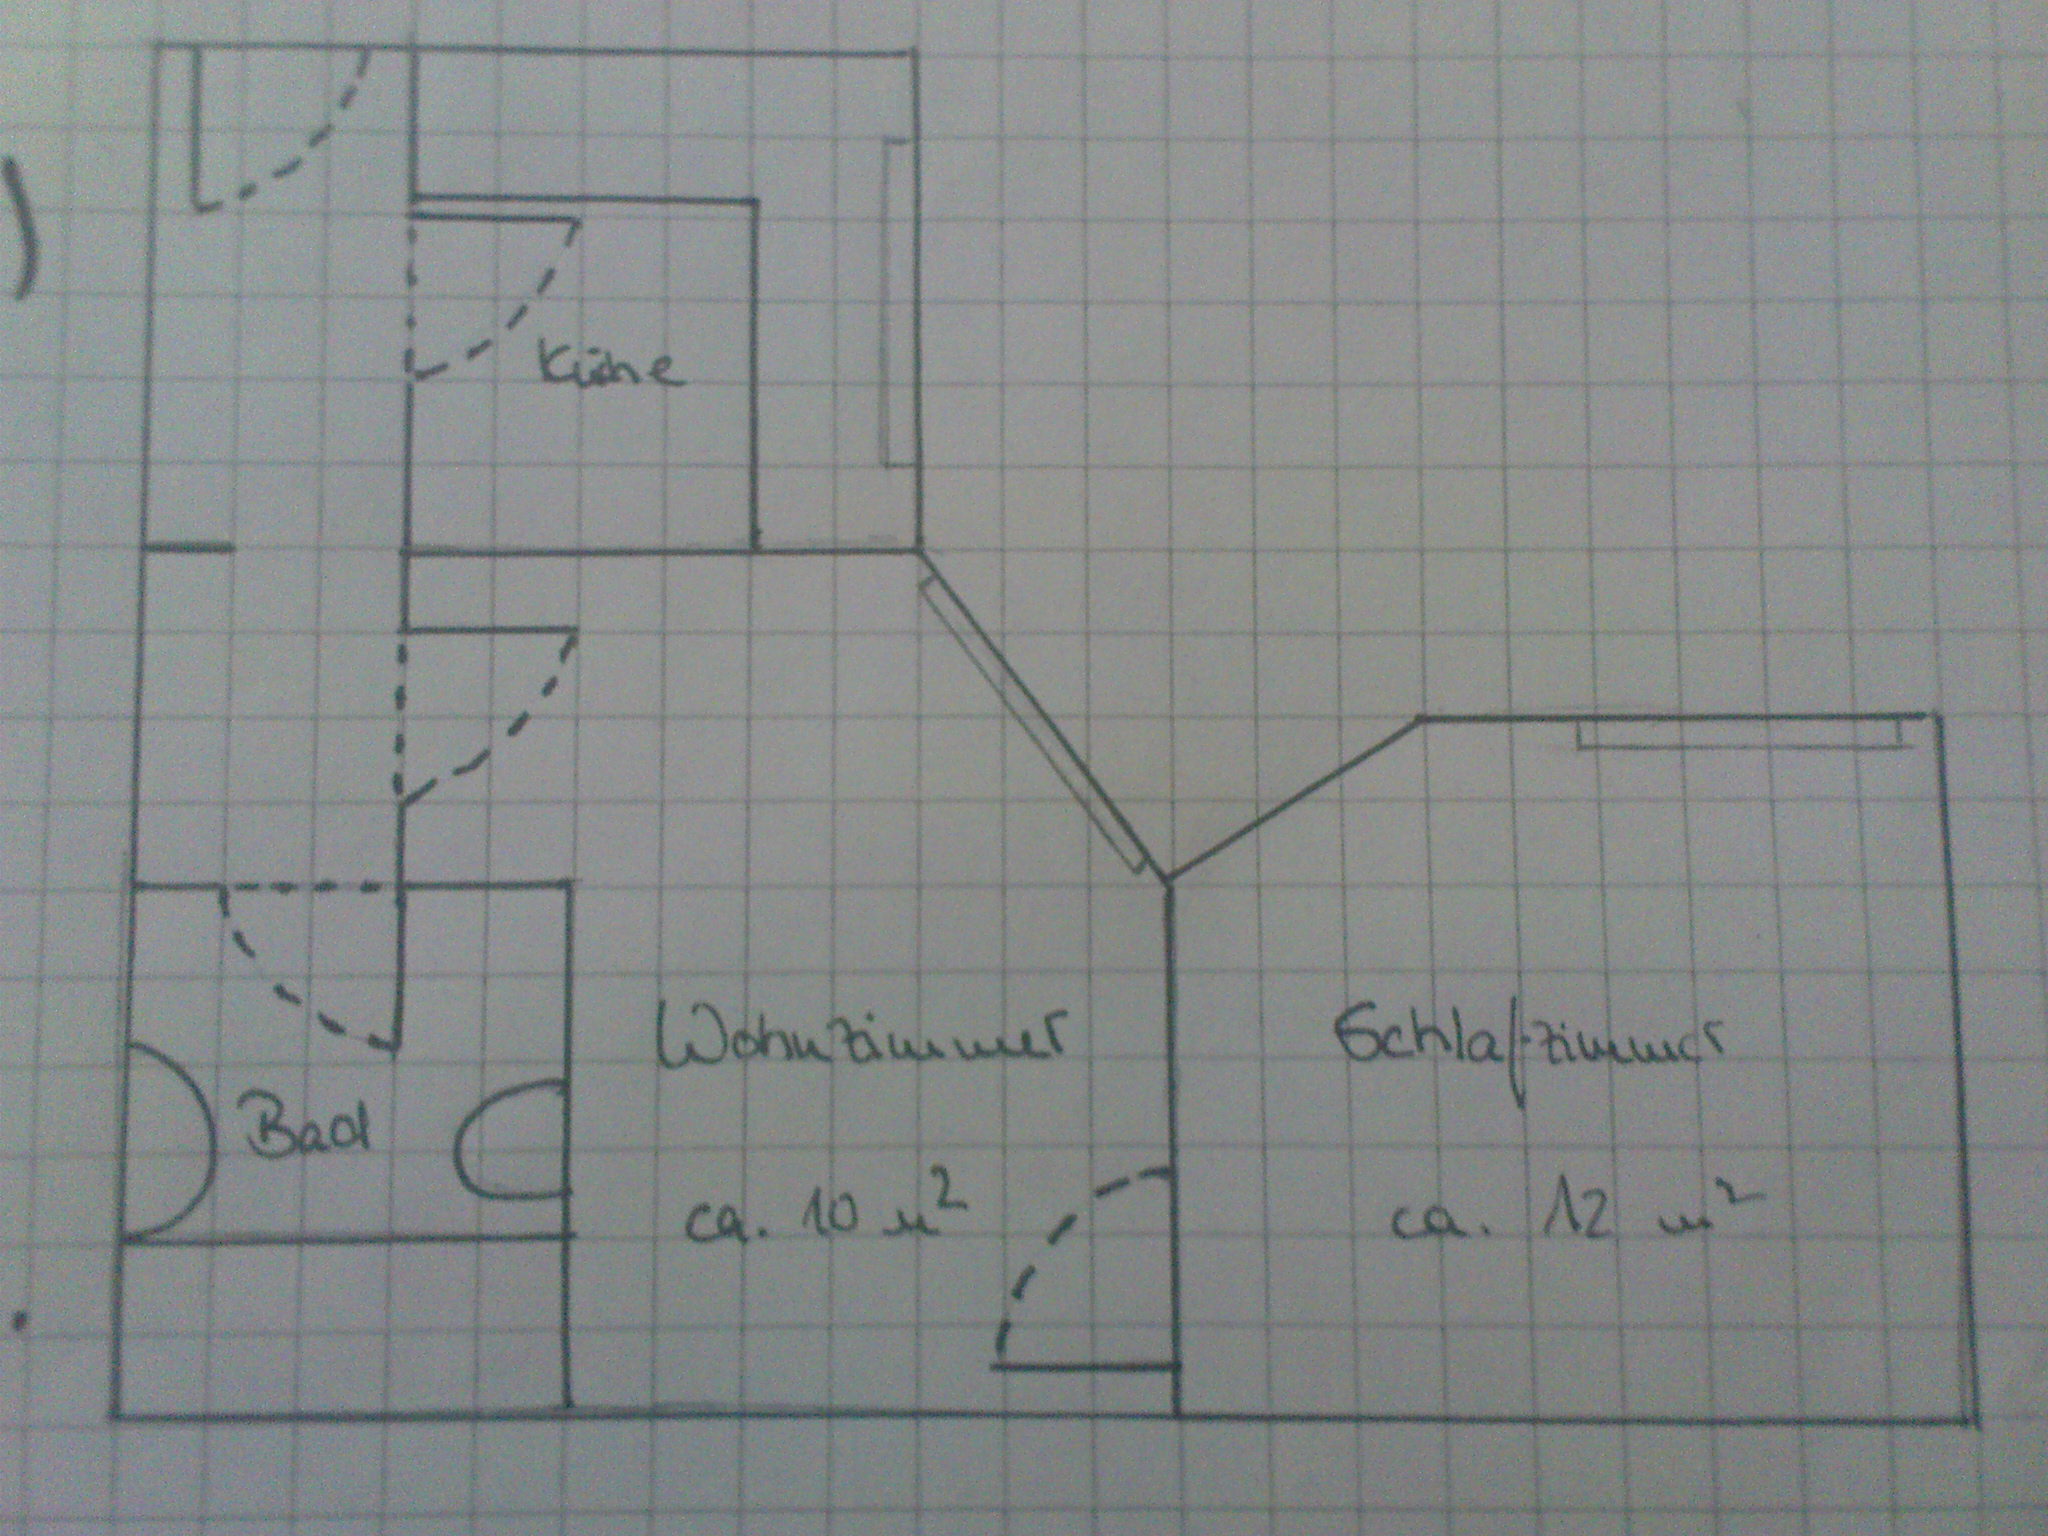 Küche
Wohnzimmer
Schlafzimmer
Bad
ca. 10 m²
ca. 12 m²